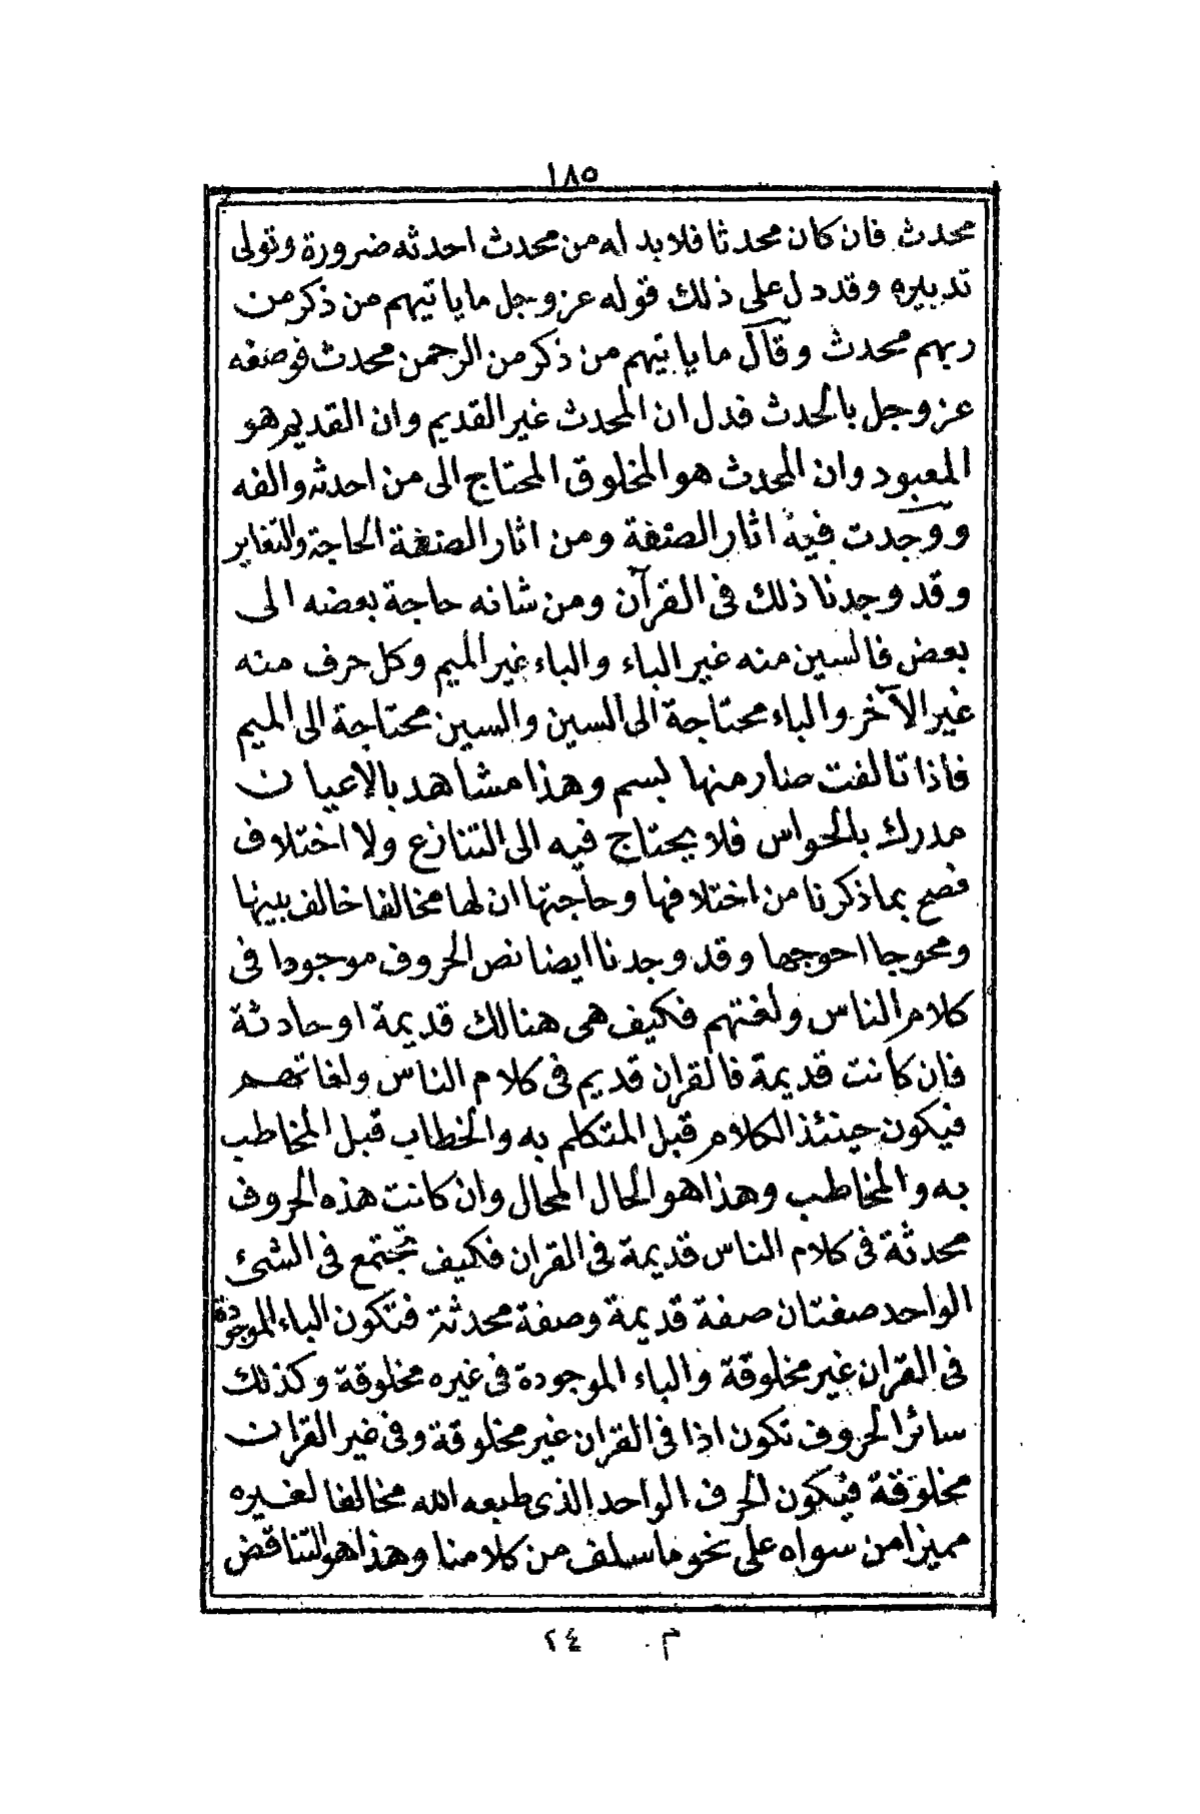 ١٨٥
محدث فان كان محدثا فلا بد له من محدث احدثه ضرورة وتولى
تدبيره وقد دل على ذلك قوله عز وجل ما ياتيهم من ذكر من
ربهم محدث وقال ما ياتيهم من ذكر من الرحمن محدث فوصفه
عز وجل بالحدث فدل ان المحدث غير القديم وان القديم هو
المعبود وان المحدث هو المخلوق المحتاج الى من احدثه والفه
ووجدت فيه اثار الصنعة ومن اثار الصنعة الحاجة والتغاير
وقد وجدنا ذلك في القرآن ومن شانه حاجة بعضه الى
بعض فالسين منه غير الباء والباء غير الميم وكل حرف منه
غير الآخر والباء محتاجة الى السين والسين محتاجة الى الميم
فاذا تالفت صار منها بسم وهذا مشاهد بالاعيان
مدرك بالحواس فلا يحتاج فيه الى التنازع ولا اختلاف
فصح بما ذكرنا من اختلافها وحاجتها ان لها مخالفا خالف بينها
ومحوجا احوجها وقد وجدنا ايضا نص الحروف موجودا في
كلام الناس ولغتهم فكيف هي هنالك قديمة او حادثة
فان كانت قديمة فالقران قديم في كلام الناس ولغاتهم
فيكون حينئذ الكلام قبل المتكلم به والخطاب قبل المخاطب
به والمخاطب وهذا هو الحال المحال وان كانت هذه الحروف
محدثة في كلام الناس قديمة في القران فكيف تجتمع في الشئ
الواحد صفتان صفة قديمة وصفة محدثة فتكون الباء الموجودة
في القران غير مخلوقة والباء الموجودة في غيره مخلوقة وكذلك
سائر الحروف تكون اذا في القران غير مخلوقة وفي غير القران
مخلوقة فيكون الحرف الواحد الذي طبعه الله مخالفا لغيره
مميزا من سواه على نحو ما سلف من كلامنا وهذا هو التناقض
م ٢٤